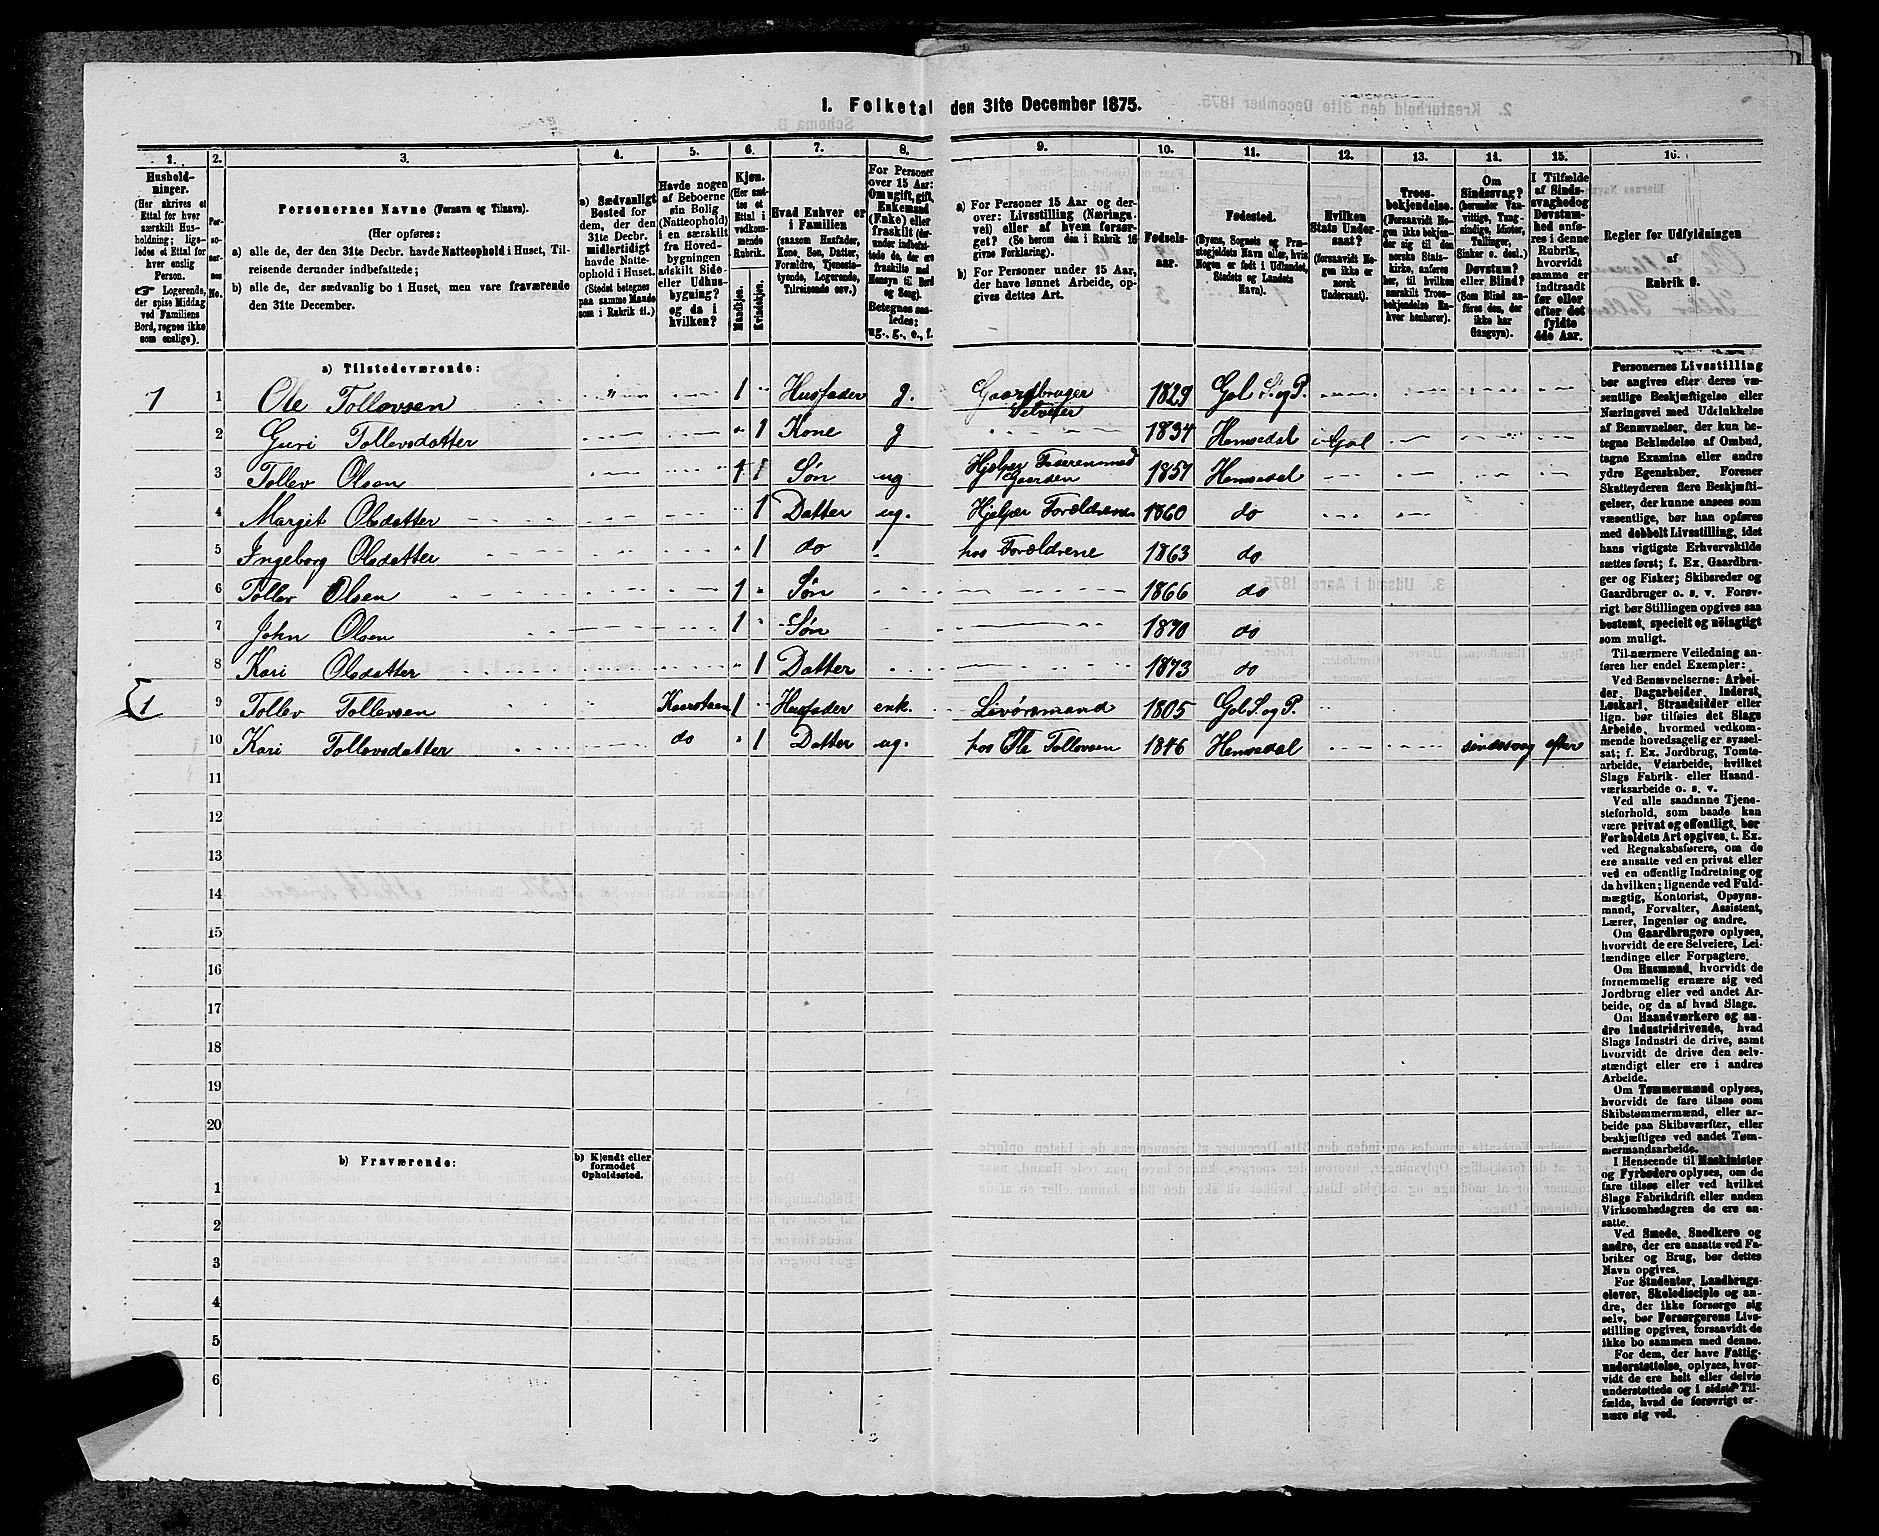 1. Folketal den 31te December 1875.
1.
2.
3.
4.
5.
6.
7.
8.
9.
10.
11.
12.
13.
14.
15.
16.
Hushold-
ninger.
(Her skrives et
Ettal for hver
særskilt Hus-
holdning; lige-
ledes et Ettal for
hver enslig
Person.
☞ Logerende,
der spise Middag
ved Familiens
Bord, regnes ikke
som enslige).
Per-
soner-
nes
No.
Personernes Navne (Fornavn og Tilnavn).
(Her opføres:
a) alle de, der den 31te Decbr. havde Natteophold i Huset, Til-
reisende derunder indbefattede;
b) alle de, der sædvanlig bo i Huset, men vare fraværende
den 31te December.
a) Sædvanligt
Bosted for
dem, der den
31te Decbr.
midlertidigt
havde Natte-
ophold i Huset.
(Stedet betegnes
paa samme Maade
som i Rubrik 11.)
Havde nogen
af Beboerne
sin Bolig
(Natteophold)
i en særskilt
fra Hoved-
bygningen
adskilt Side-
eller Udhus-
bygning?
og da i
hvilken?
Kjøn.
(Her sæt-
tes et
Ettal i
vedkom-
mende
Rubrik.
Mandkjøn.
Kvindekjøn.
Hvad Enhver er
i Familien
(saasom Husfader,
Kone, Søn, Datter,
Forældre, Tjeneste-
tyende, Logerende,
Tilreisende osv.)
For Personer
over 15 Aar:
Om ugift, gift,
Enkemand
(Enke) eller
fraskilt (der-
under indbefat-
tede de, der ere
fraskilte med
Hensyn til Bord
og Seng).
Betegnes saa-
ledes:
ug., g., e., f.
a) For Personer 15 Aar og der-
over: Livsstilling (Nærings-
vei) eller af hvem forsør-
get? (Se herom den i Rubrik 16
givne Forklaring).
b) For Personer under 15 Aar,
der have lønnet Arbeide, op-
gives dettes Art.
Fødsels-
aar.
Fødested.
(Byens, Sognets og Præ-
stegjeldets Navn eller, hvis
Nogen er født i Udlandet,
Stedets og Landets
Navn).
Hvilken
Stats Under-
saat?
(forsaavidt No-
gen ikke er
norsk
Undersaat).
Troes-
bekjendelse.
(Forsaavidt No-
gen ikke bekjen-
der sig til den
norske Stats-
kirke, anføres
her, til hvilken
særskilt Troes-
bekjendelse En-
hver henhører).
Om
Sindssvag?
(herunder Van-
vittige, Tung-
sindige, Idioter,
Tullinger,
Sinker o. desl.)
Døvstum?
eller Blind?
(Som Blind an-
føres den, der
ikke har
Gangsyn).
I Tilfælde
af Sinds-
svaghed og
Døvstum-
hed anføres
i denne
Rubrik,
hvorvidt
samme er
indtraadt
før eller
efter det
fyldte
4de Aar.
Regler for Udfyldningen
af
Rubrik 9.
a) Tilstedeværende:
1 1 Ole Tollovsen 1 Husfader g. Gaardbruger Selveier 1829 Gol S. og P.
2 Guri Tollevsdatter 1 Kone g 1834 Hemsedal i Gol
3 Tollev Olsen 1 1 Søn ug Hjelper Faderen med Gaarden 1857 Hemsedal
4 Margit Olsdatter 1 Datter ug. Hjelper Forældrene 1860 do
5 Ingeborg Olsdatter 1 do hos Forældrene 1863 do
6 Tollev Olsen 1 Søn 1866 do
7 John Olsen 1 Søn 1870 do
8 Kari Olsdatter 1 Datter 1873 do
1 9 Tollev Tollevsen 1 Husfader enk. Livøremand 1805 Gol S. og P.
10 Kari Tollovsdatter do 1 Datter ug. hos Ole Tollovsen 1846 Hemsedal sindssvag efter
11
12
13
14
15
16
17
18
19
20
b) Fraværende:
b) Kjendt eller
formodet
Opholdssted.
1
2
3
4
5
6
Personernes Livsstilling
bør angives efter deres væ-
sentlige Beskjæftigelse eller
Næringsvei med Udelukkelse
af Benævnelser, der kun be-
tegne Beklædelse af Ombud,
tagne Examina eller andre
ydre Egenskaber. Forener
Skatteyderen flere Beskjæfti-
gelser, der kunne ansees som
væsentlige, bør han opføres
med dobbelt Livsstilling, idet
hans vigtigste Erhvervskilde
sættes først; f. Ex. Gaardbru-
ger og Fisker; Skibsreder og
Gaardbruger o. s. v. Forøv-
rigt bør Stillingen opgives saa
bestemt, specielt og nøiagtigt
som muligt.
Til nærmere Veiledning an-
føres her endel Exempler:
Ved Benævnelserne: Arbei-
der, Dagarbeider, Inderst,
Løskarl, Strandsidder eller
lign. bør tilføies det Slags
Arbeide, hvormed vedkom-
mende hovedsagelig er syssel-
sat; f. Ex. Jordbrug, Tomte-
arbeide, Veiarbeide, hvilket
Slags Fabrik- eller Haand-
værksarbeide o. s. v.
Ved alle saadanne Tjene-
steforhold, som baade kan
være privat og offentligt, bør
Forholdets Art opgives, t. Ex.
ved Regnskabsførere, om de
ere ansatte ved en privat eller
ved en offentlig Indretning og
da hvilken; lignende ved Fuld-
mægtig, Kontorist, Opsyns-
mand, Forvalter, Assistent,
Lærer, Ingeniør og andre.
Om Gaardbrugere oplyses,
hvorvidt de ere Selveiere, Lei-
lændinge eller Forpagtere.
Om Husmænd, hvorvidt de
fornemmelig ernære sig ved
Jordbrug eller ved andet Ar-
beide, og da af hvad Slags.
Om Haandværkere og an-
dre industridrivende, hvad
Slags Industri de drive, samt
hvorvidt de drive den selv-
stændigt eller ere i andres
Arbeide.
Om Tømmermænd oplyses,
hvorvidt de fare tilsøs som
Skibstømmermænd, eller ar-
beide paa Skibsværfter, eller
beskjæftiges ved andet Tøm-
mermandsarbeide.
I Henseende til Maskinister
og Fyrbødere oplyses, om de
fare tilsøs eller ved hvilket
Slags Fabrikdrift eller anden
Virksomhedsgren de ere an-
satte.
Ved Smede, Snedkere og
andre, der ere ansatte ved Fa-
briker og Brug, bør dettes
Navn opgives.
For Studenter, Landbrugs-
elever, Skoledisciple og an-
dre, der ikke forsørge sig
selv, bør Forsørgerens Livs-
stilling opgives, forsaavidt de
ikke bo sammen med denne.
For dem, der have Fattig-
understøttelse, oplyses, hvor-
vidt de ere helt eller delvis
understøttede og i sidste Til-
fælde, hvad de forøvrigt er-
nære sig ved.